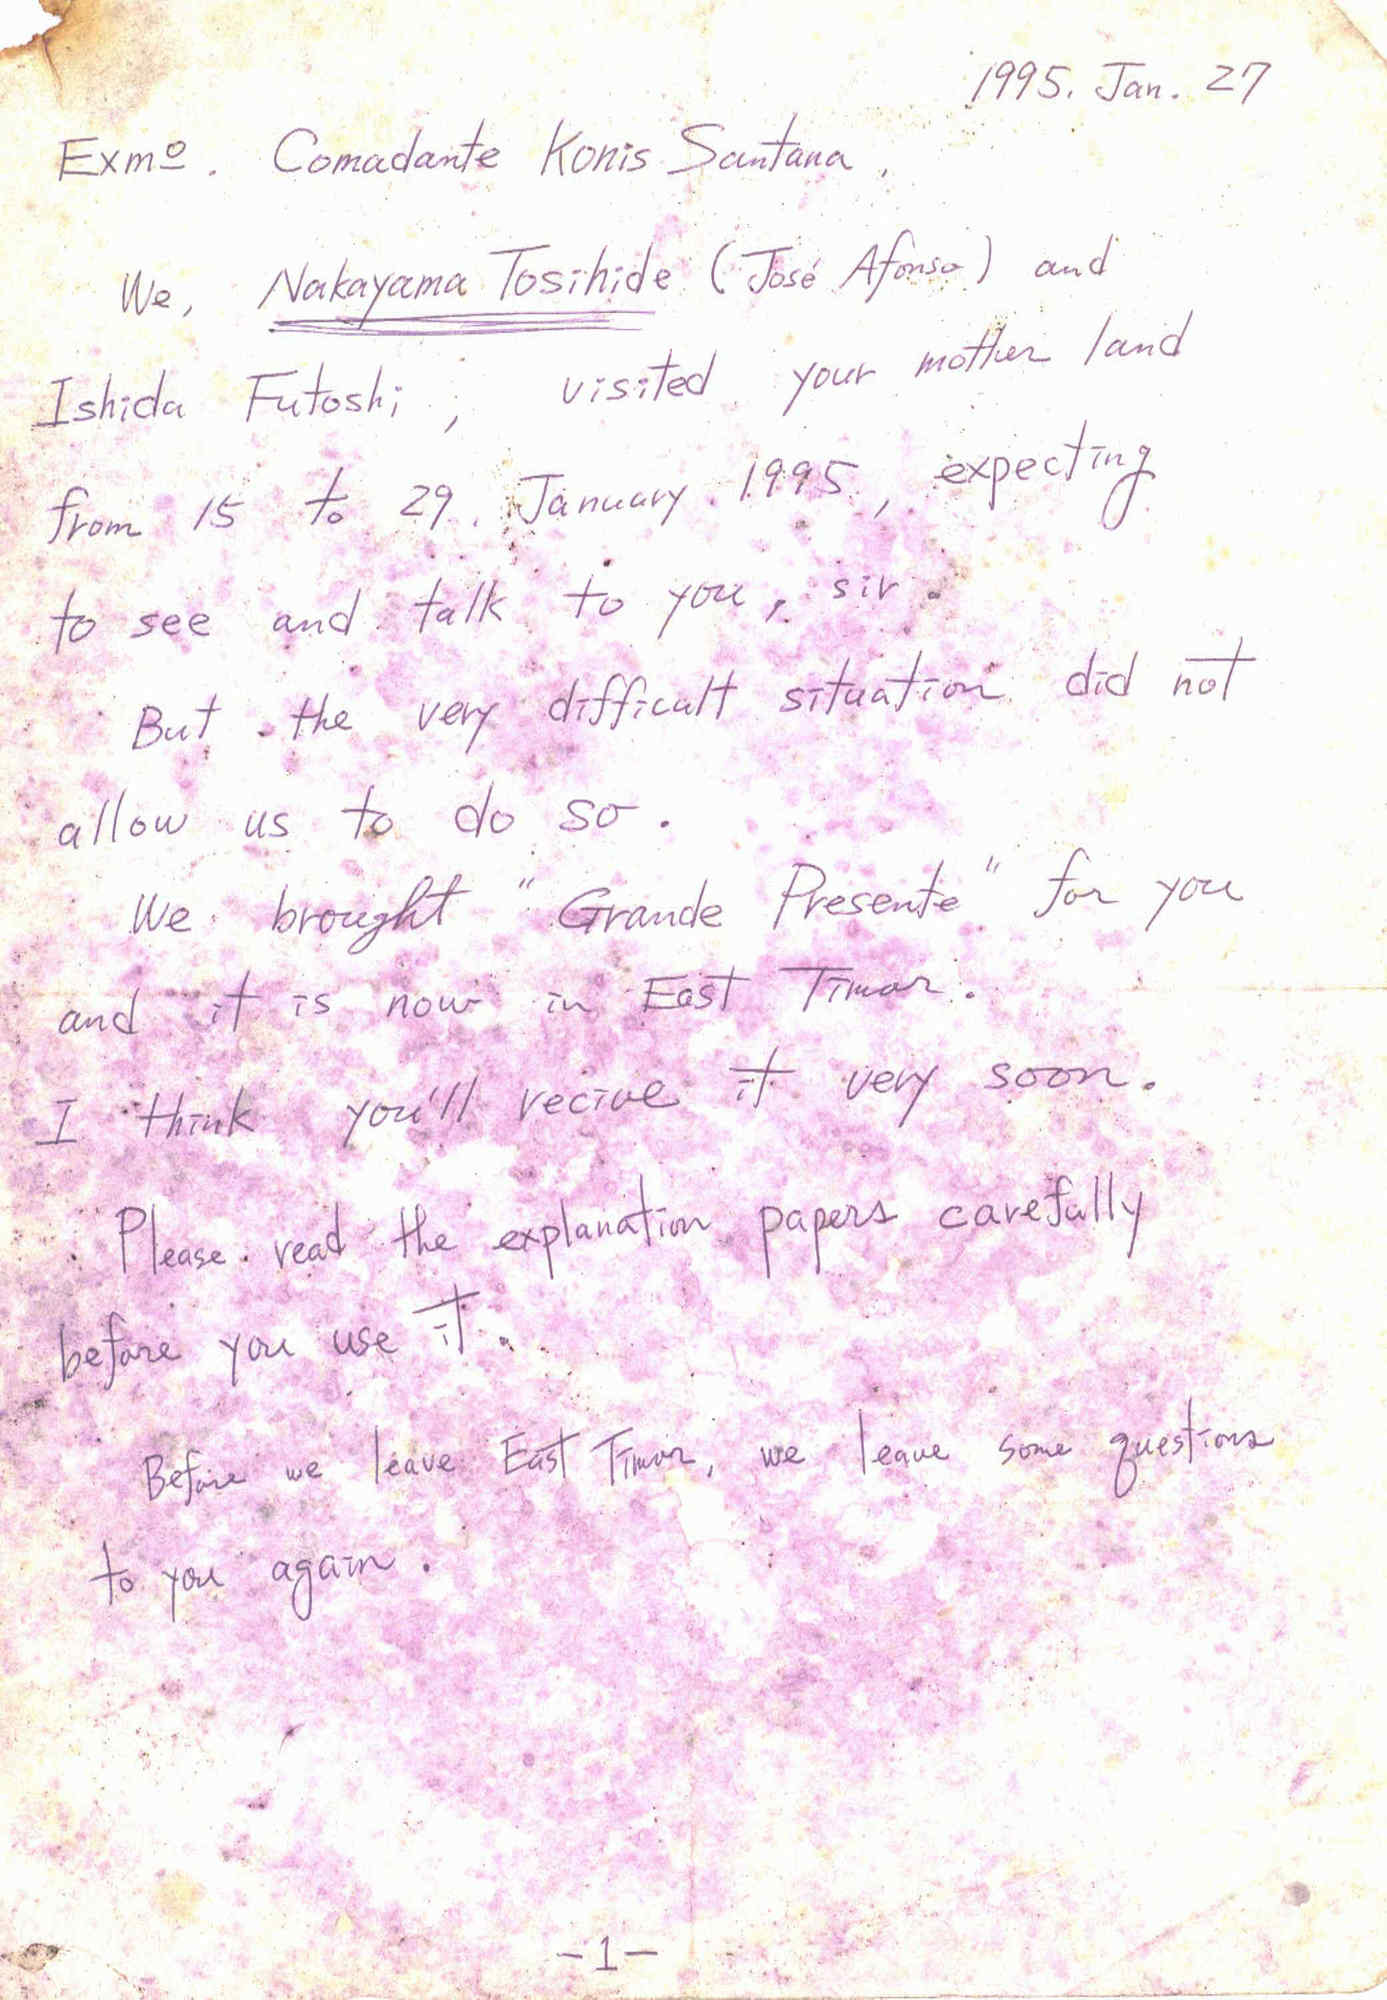 1995. Jan. 27
Exmº. Comadante Konis Santana,
We, Nakayama Tosihide (José Afonso) and
Ishida Futoshi, visited your mother land
from 15 to 29. January. 1995, expecting
to see and talk to you, sir.
But the very difficult situation did not
allow us to do so.
We brought "Grande Presente" for you
and it is now in East Timor.
I think you'll recive it very soon.
Please read the explanation papers carefully
before you use it.
Before we leave East Timor, we leave some questions
to you again.
-1-